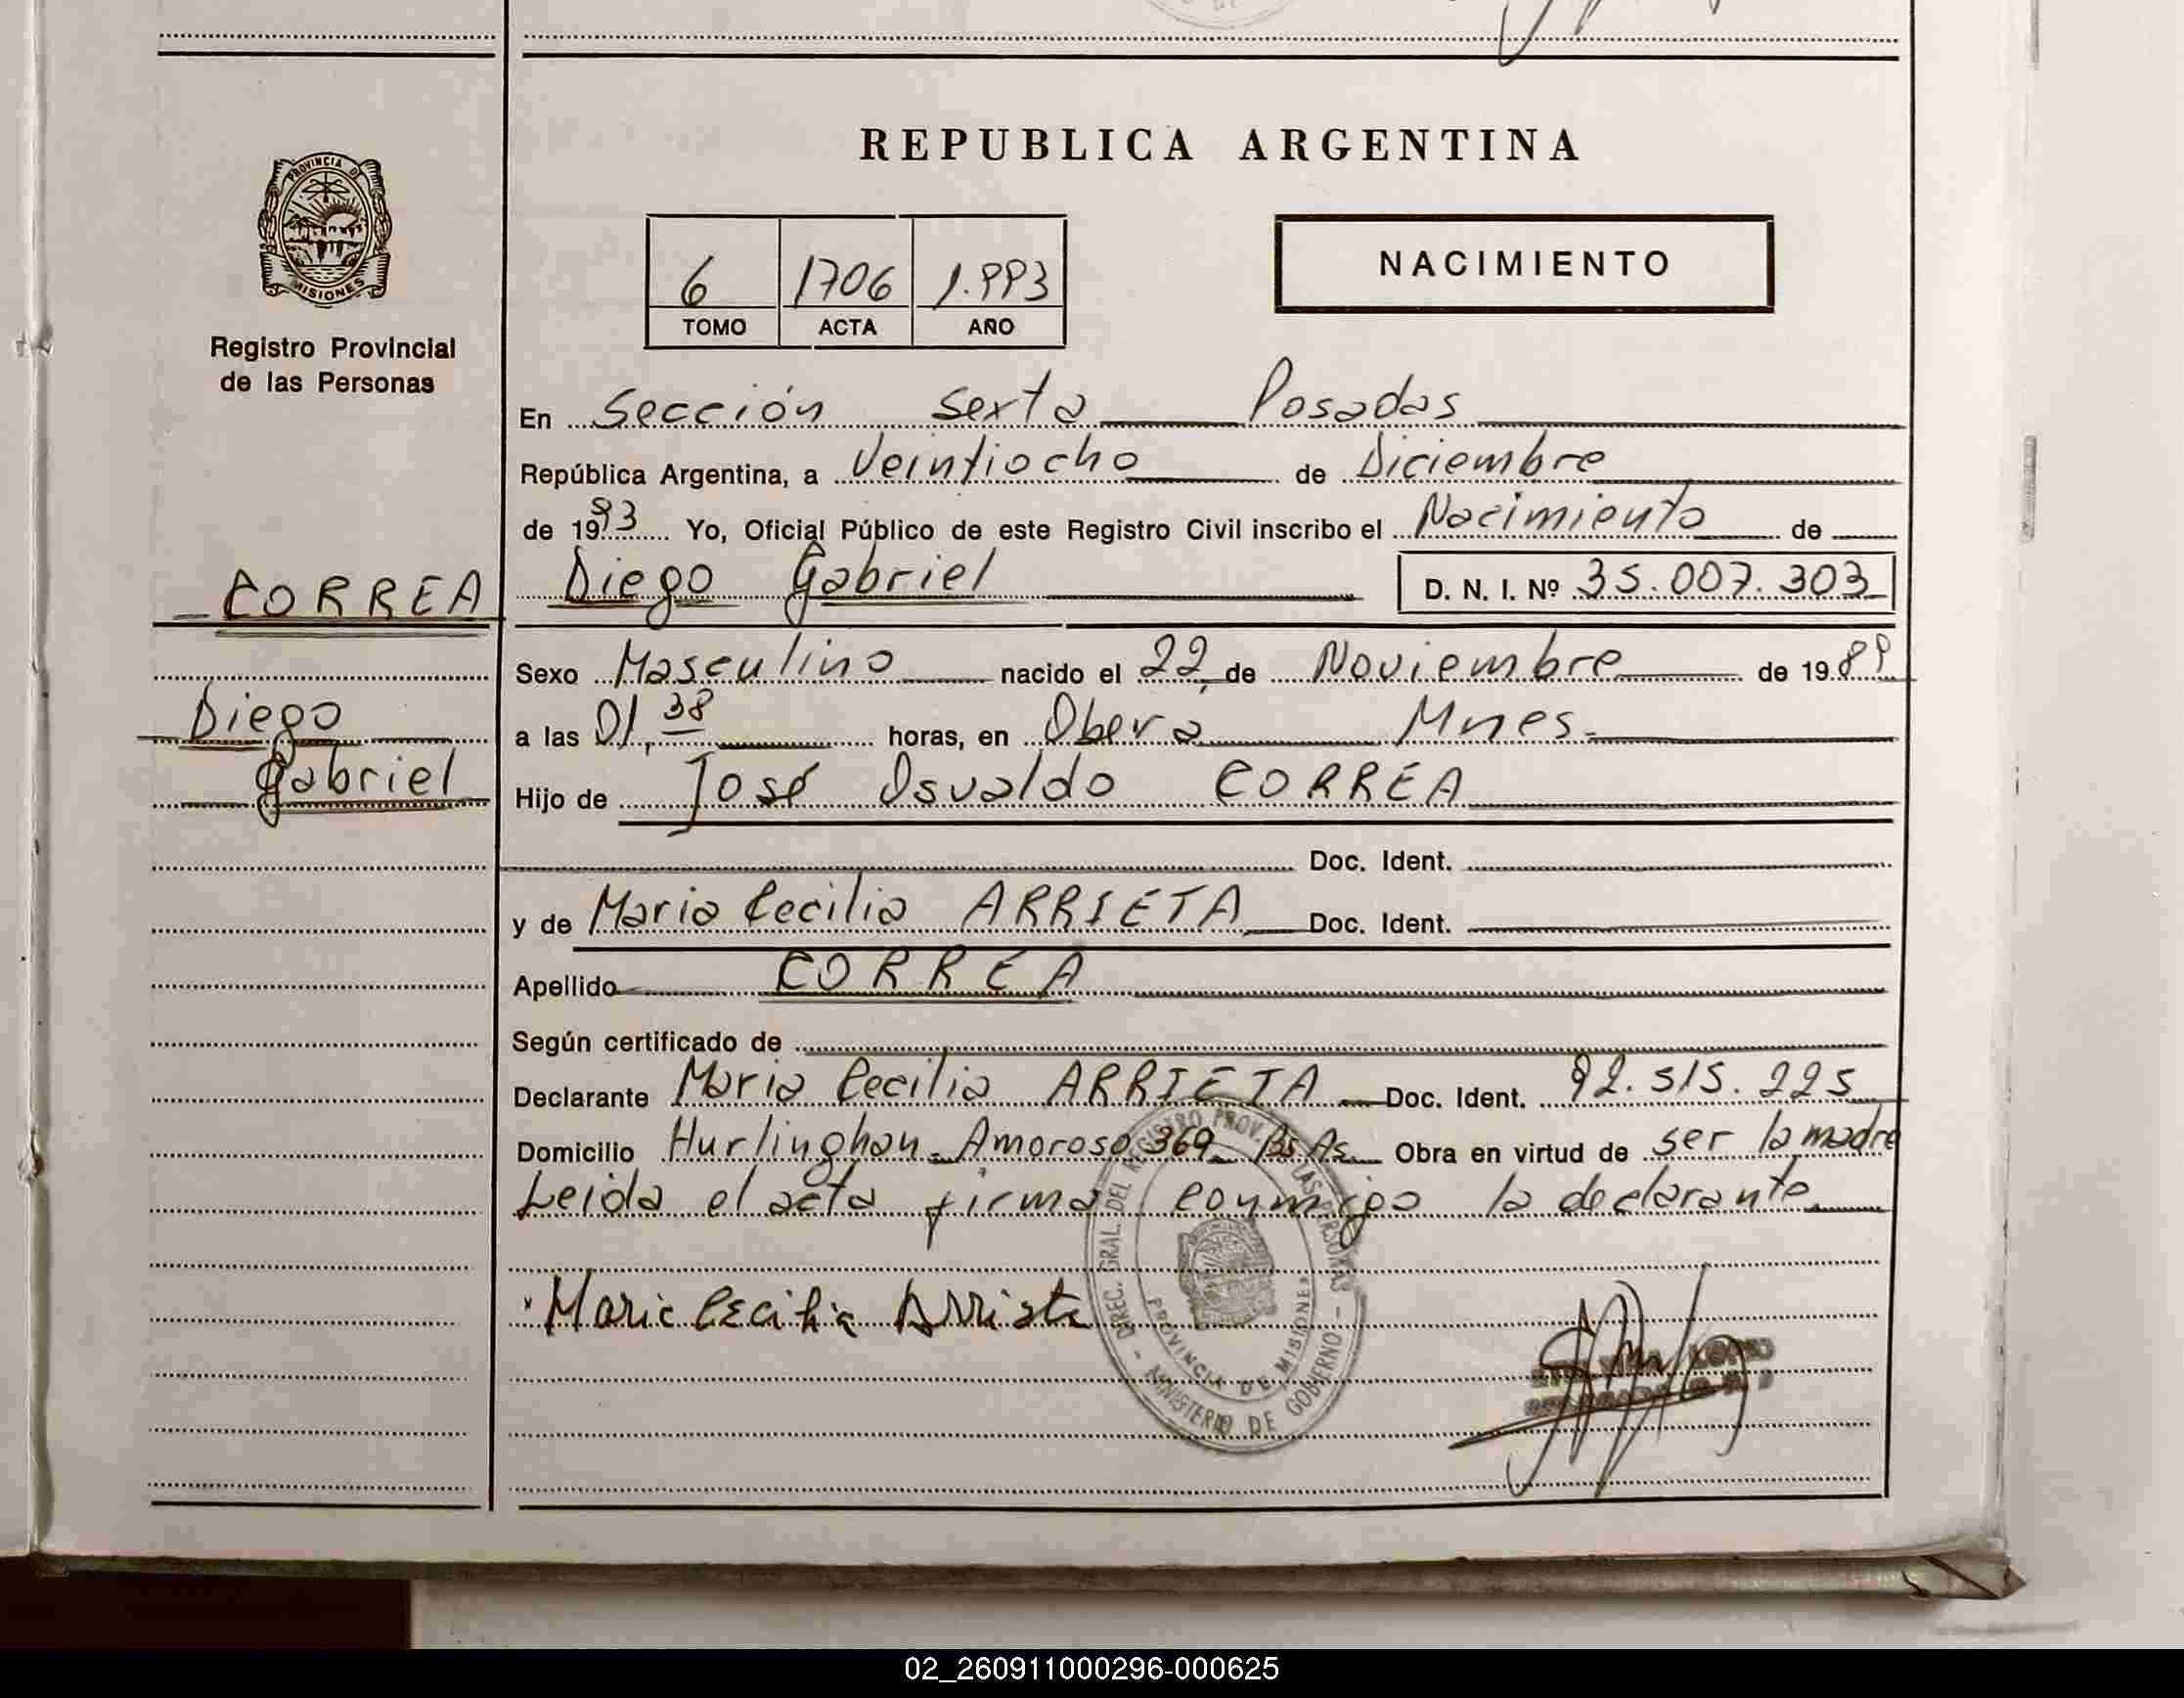 REPUBLICA ARGENTINA
PROVINCIA DE
MISIONES
Registro Provincial
de las Personas
6 1706 1.993
TOMO ACTA AÑO
NACIMIENTO
En Sección Sexta Posadas
República Argentina, a Veintiocho de Diciembre
de 1993 Yo, Oficial Público de este Registro Civil inscribo el Nacimiento de
CORREA
Diego Gabriel D. N. I. Nº 35.007.303
Sexo Masculino nacido el 22 de Noviembre de 1989
Diego
Gabriel
a las 01,38 horas, en Oberá Mnes.
Hijo de José Osvaldo CORREA
Doc. Ident.
y de Maria Cecilia ARRIETA Doc. Ident.
Apellido CORREA
Según certificado de
Declarante Maria Cecilia ARRIETA Doc. Ident. 92.515.225
Domicilio Hurlinghan - Amoroso 369 Bs As. Obra en virtud de ser la madre
Leida el acta firma conmigo la declarante
Maria Cecilia Arrieta
DIREC. GRAL. DEL REGISTRO PROV. DE LAS PERSONAS - MINISTERIO DE GOBIERNO -
PROVINCIA DE MISIONES
02_260911000296-000625